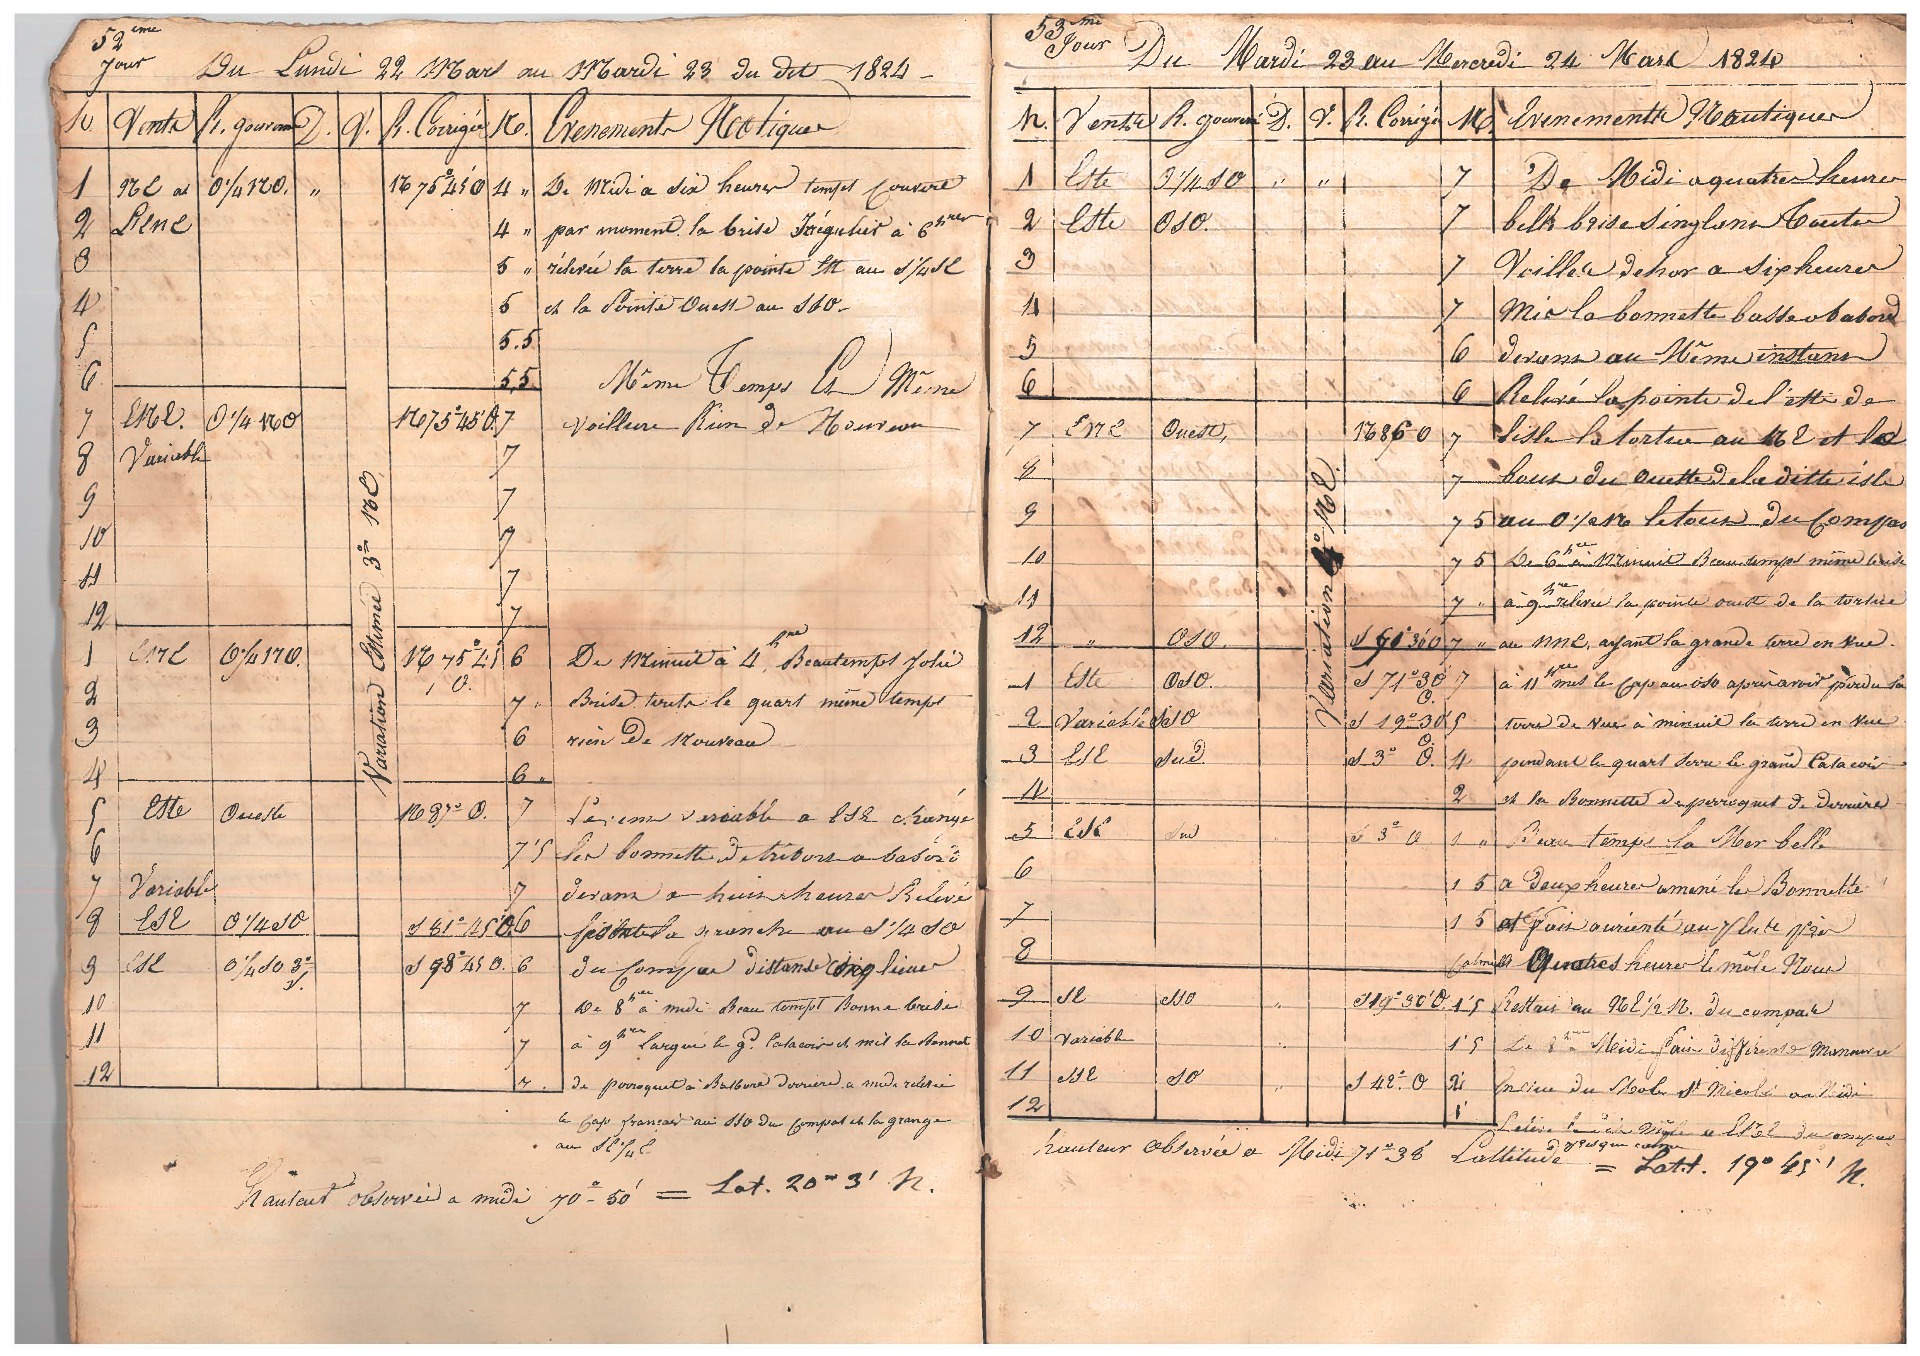 52ème
Jour
Du Lundi 22 Mars au Mardi 23 du dit 1824
h. Vents R. gouverné D. V. R. Corrigée N. Evenements Notiques
1 NE et O¼NO. " N 75° 45' O 4 " De Midi a six heures temps couvert
2 LENE 4 " par moment la brise Irégulier à 6 hres
3 5 " rélevée la terre la pointe Est au S¼SE
4 5 et la Pointe Ouest au SSO
5 5.5
6 5.5 Même Temps Et Même
7 ENE. O¼NO N 75° 45' O. 7 voillure Rien de Nouveau
8 Variable 7
9 7
10 7
11 7
12 7
Variation Estimée 3° NE
1 ENE O¼NO. N 75° 45' O. 6 De Minuit à 4 hre Beautemps Jolie
2 7 " Brise toute le quart même temps
3 6 rien De Nouveau
4 6 "
5 Este Oueste N 87° O. 7 variable a ESE changé
6 7'5 les bonnette de tribord a babord
7 Variable 7 devans a huis heures Relevé
8 ESE O¼SO S 81° 45' O. 6 la granche au S¼SO
9 ESE O¼SO 3° S 98° 45' O. 6 du Compas distanse cinq lieues
10 7 De 8 hre à midi Beau tempt Bonne brise
11 7 à 9 hre Largué le gd. Catacois et mit la Bonnet
12 7 . de perroquet à Babord derriere a midi relevée
le Cap francais au SSO du Compas et la grange
au SE¼E
Hauteur observée a midi 70° - 50' = Lat. 20° 3' N.
53me
Jour
Du Mardi 23 au Mercredi 24 Mars 1824
h. Vents R. gouverné D. V. R. Corrigé N. Evenements Nautiques
1 Este O¼SO " " 7 De Midi a quatre heures
2 Este OSO. 7 belle brise singlans Toute
3 7 Voilles dehor a six heures
4 7 Mis la bonnette basse a babord
5 6 devans au Même instans
6 6 Relevé la pointe de l'este de
7 ENE Ouest, N 86 O 7 l'isle la tortue au NE et le
8 7 bous du Oueste de la ditte isle
9 7 5 au O½N le tous du Compas
10 7 5 De 6 hre à Minuit Beau temps même brise
11 7 " à 9 hre relevée la pointe ouest de la tortue
12 " OSO. S 70° 30' O 7 " au NNE, ayant la grande terre en vue.
Variation 4° NE.
1 Este OSO. S 71° 30' O. 7 à 11 hre mis le Cap au OSO après avoir perdu la
2 Variable SSO S 19° 30' O. 5 terre de vue à minuit la terre en vue
3 ESE Sud. S 3° O. 4 pendant le quart Serré le grand Catacois
4 2 et la Bonnette de perroquet de derrière
5 ESE Sud S 3° O 1 " Beau temps la Mer belle
6 1 5 a deux heures amené les Bonnette
7 1 5 et fais orienté au plus près
8 Calme Quatres heures le môle Nous
9 SE SSO " S 19° 30' O. 1'5 Restais au NE½N. du compas
10 Variable 1'5 De 8 hre a Midi fais différente Manœuvre
11 SSE SO " S 42° O 2' En vue du Mole St Nicolas a Midi
12 1' Relevé le Môle a ESE du compas
presque calme
hauteur observée a Midi 71° 38' Lattitude = Latt. 19° 45' N.